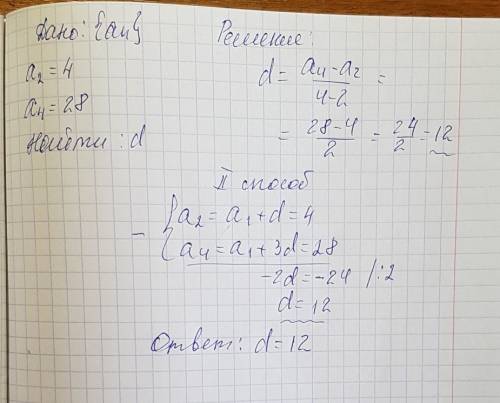 Дано: {an}
a₂ = 4
a₄ = 28
Найти: d
Решение:
d = (a₄ - a₂)/(4 - 2) =
= (28 - 4)/2 = 24/2 = 12
II способ
- { a₂ = a₁ + d = 4
{ a₄ = a₁ + 3d = 28
-2d = -24 /:2
d = 12
Ответ: d = 12